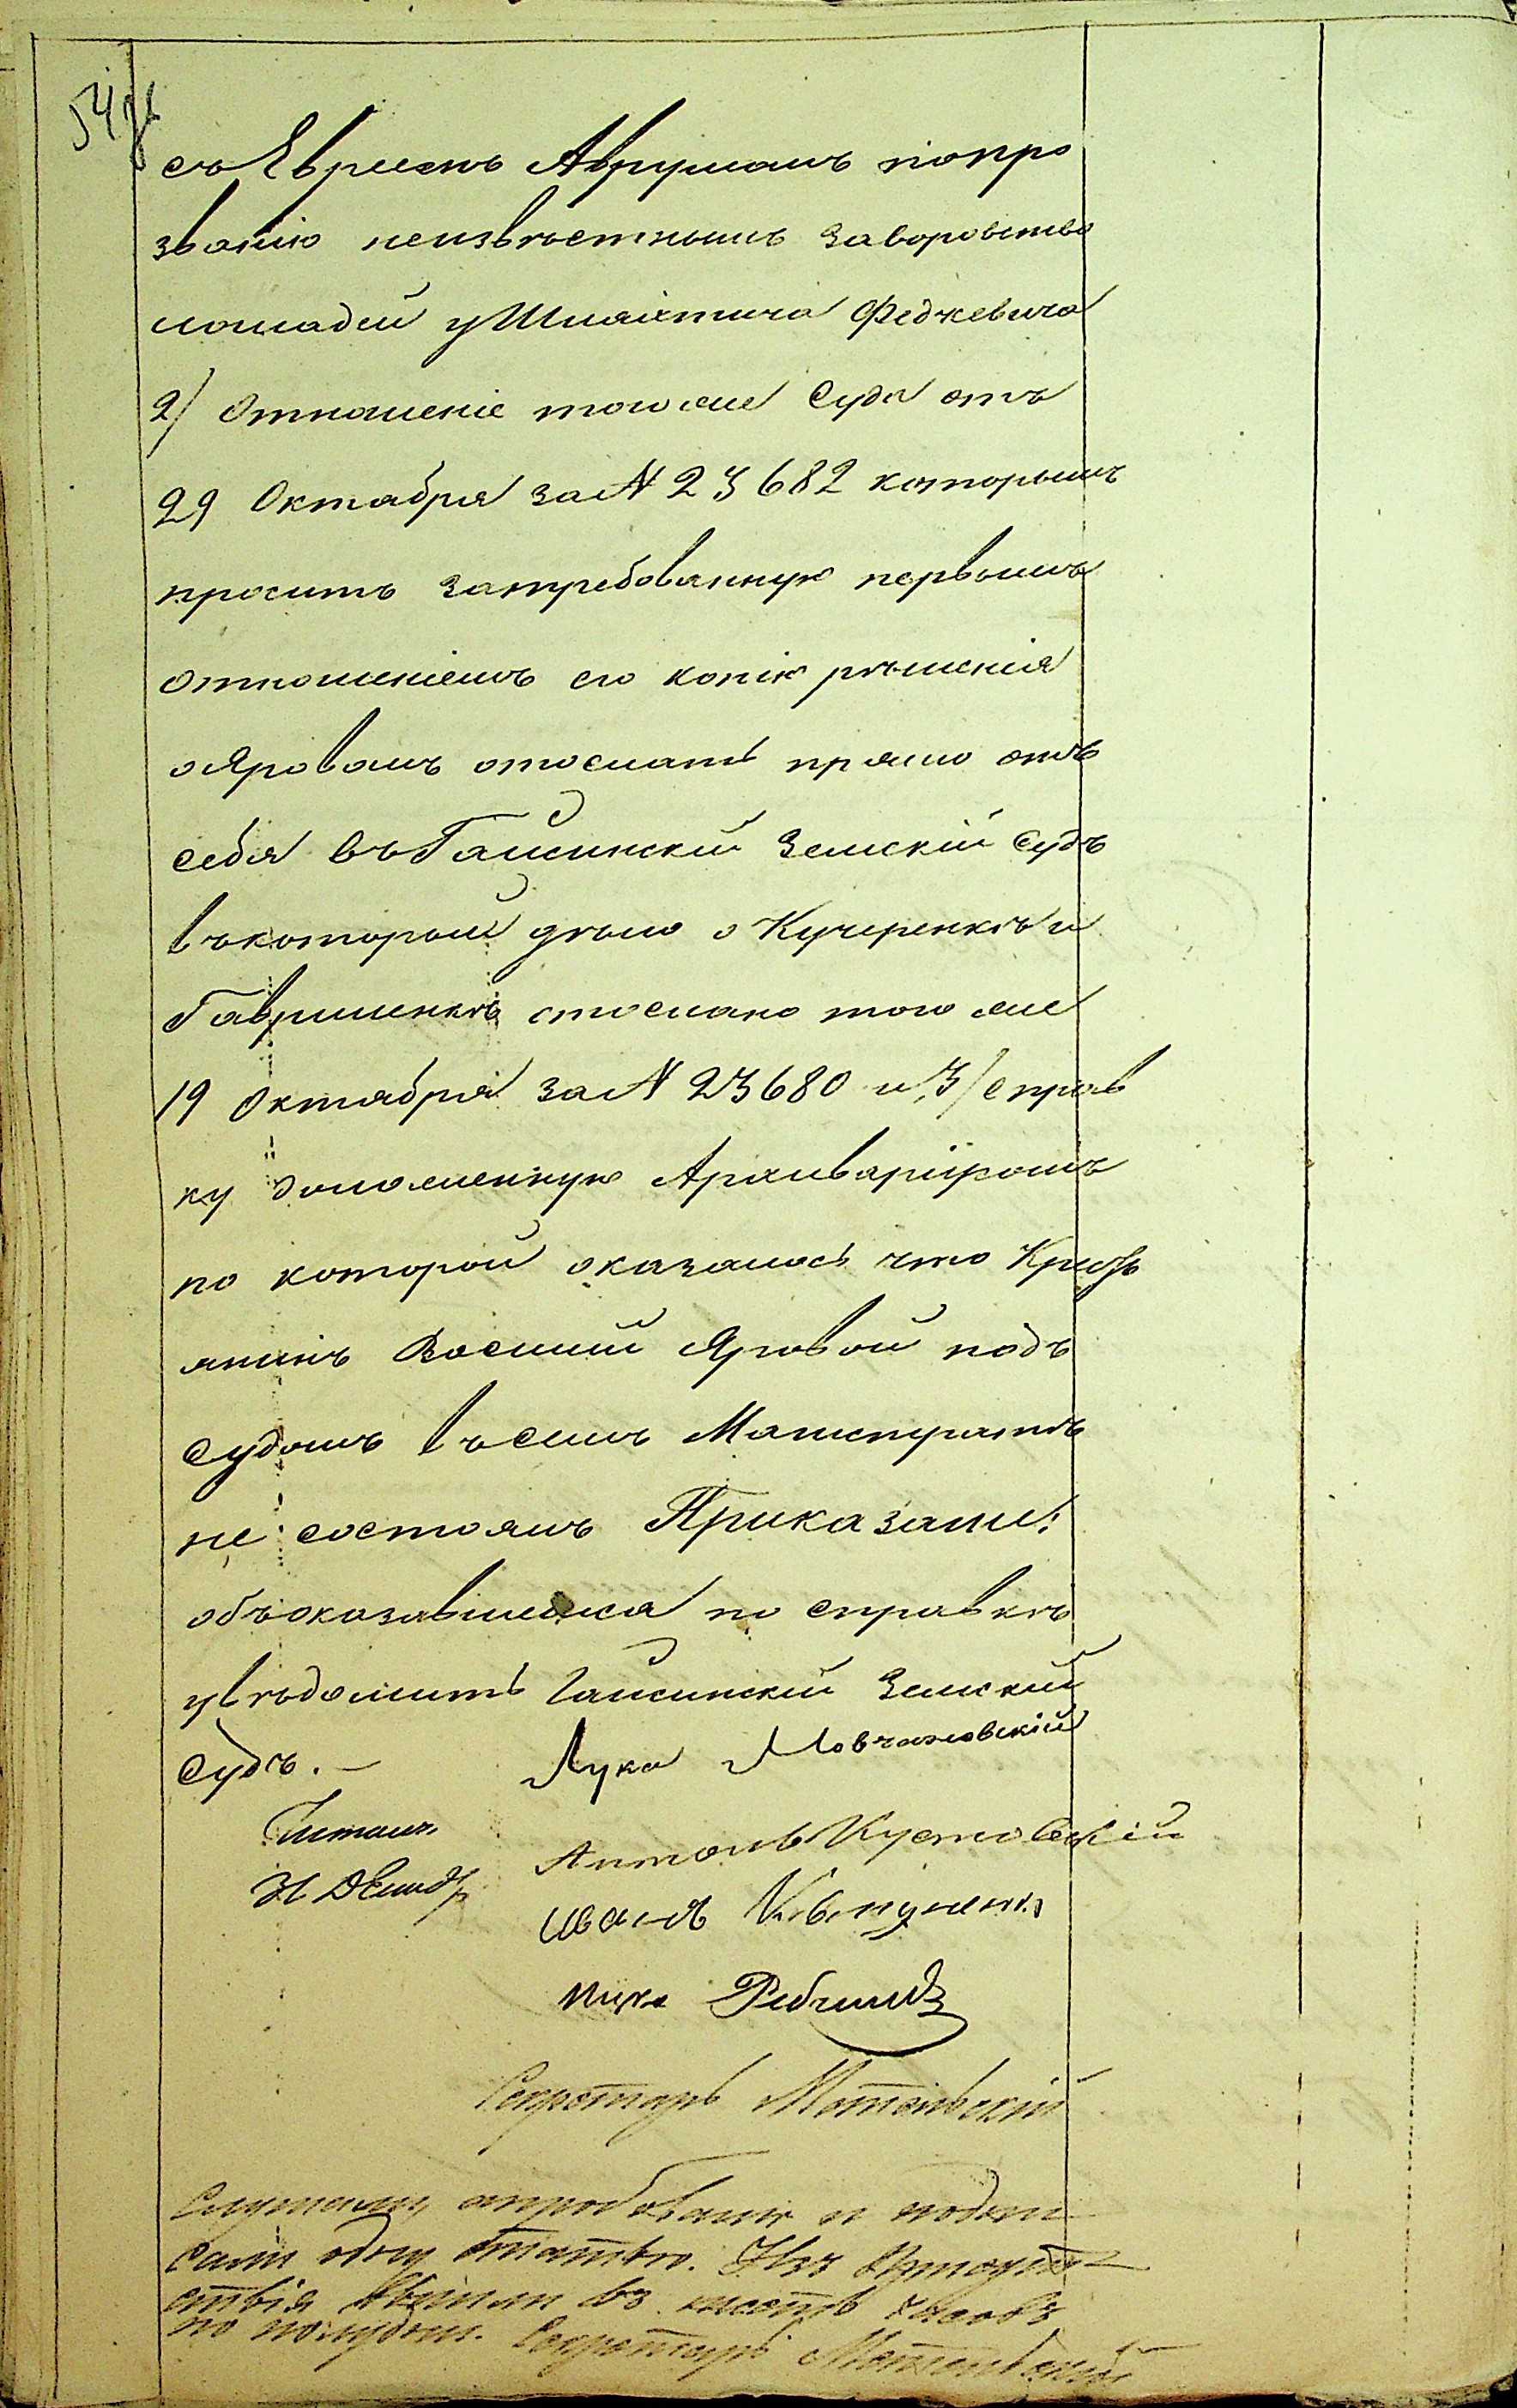 съ Евреемъ Аврумомъ попро
званію неизвѣстнымъ заворовство
лошадей у Шляхтича Федкевича
2/ Отношеніе того же Суда отъ
29 Октября за N 23682 которымъ
проситъ затребованную первымъ
отношеніемъ его копію рѣшенія
о Яровомъ отослать прямо отъ
себя въ Гайсинскій Земскій Судъ
въ которой дѣло о Кучеренкѣ и
Гавришенкѣ отослано того же
19 Октября за N 23680 и, 3/ справ
ку доложенную Архиваріусомъ
по которой оказалось что Кресть
янинъ Василий Яровой подъ
судомъ въ семъ Магистратѣ
не состоялъ Приказали:
объ оказавшемся по справкѣ
увѣдомить Гайсинскій Земский
Судъ. —
Лука Мовчановскій
Читалъ
Антонъ Кустовскій
Иванъ
Секретарь Мотомвскій
Слушали, апробовали и подпи
сали одну статью. Изъ Присут
ствія вышли въ шесть часовъ
по полудни. Секретарь